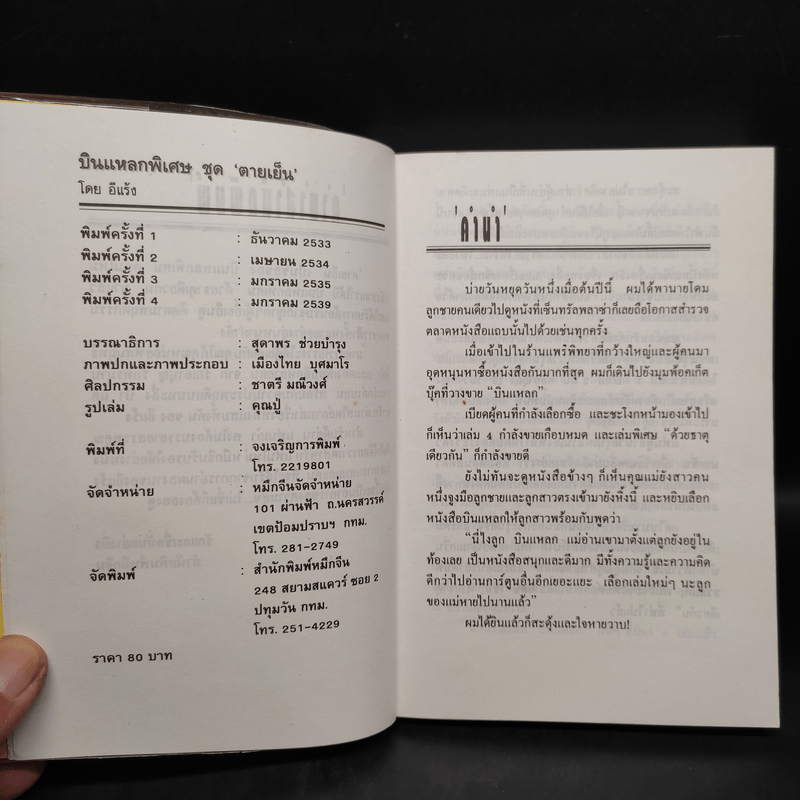 บินแหลกพิเศษ ชุด 'ตายเย็น'
โดย อีแร้ง
พิมพ์ครั้งที่ 1 : ธันวาคม 2533
พิมพ์ครั้งที่ 2 : เมษายน 2534
พิมพ์ครั้งที่ 3 : มกราคม 2535
พิมพ์ครั้งที่ 4 : มกราคม 2539
บรรณาธิการ : สุดาพร ช่วยบำรุง
ภาพปกและภาพประกอบ : เมืองไทย บุศมาโร
ศิลปกรรม : ชาตรี มณีวงศ์
รูปเล่ม : คุณปู่
พิมพ์ที่ : จงเจริญการพิมพ์
โทร. 2219801
จัดจำหน่าย : หมึกจีนจัดจำหน่าย
101 ผ่านฟ้า ถ.นครสวรรค์
เขตป้อมปราบฯ กทม.
โทร. 281-2749
จัดพิมพ์ : สำนักพิมพ์หมึกจีน
248 สยามสแควร์ ซอย 2
ปทุมวัน กทม.
โทร. 251-4229
ราคา 80 บาท
'คำนำ'
บ่ายวันหยุดวันหนึ่งเมื่อต้นปีนี้ ผมได้พานายโดม
ลูกชายคนเดียวไปดูหนังที่เซ็นทรัลพลาซ่าก็เลยถือโอกาสสำรวจ
ตลาดหนังสือแถบนั้นไปด้วยเช่นทุกครั้ง
เมื่อเข้าไปในร้านแพร่พิทยาที่กว้างใหญ่และผู้คนมา
อุดหนุนหาซื้อหนังสือกันมากที่สุด ผมก็เดินไปยังมุมพ้อคเก็ต
บุ๊คที่วางขาย "บินแหลก"
เบียดผู้คนที่กำลังเลือกซื้อ และชะโงกหน้ามองเข้าไป
ก็เห็นว่าเล่ม 4 กำลังขายเกือบหมด และเล่มพิเศษ "ด้วยธาตุ
เดียวกัน" ก็กำลังขายดี
ยังไม่ทันจะดูหนังสือข้างๆ ก็เห็นคุณแม่ยังสาวคน
หนึ่งจูงมือลูกชายและลูกสาวตรงเข้ามายังหิ้งนี้ และหยิบเลือก
หนังสือบินแหลกให้ลูกสาวพร้อมกับพูดว่า
"นี่ไงลูก บินแหลก แม่อ่านเขามาตั้งแต่ลูกยังอยู่ใน
ท้องเลย เป็นหนังสือสนุกและดีมาก มีทั้งความรู้และความคิด
ดีกว่าไปอ่านการ์ตูนอื่นอีกเยอะแยะ เลือกเล่มใหม่ๆ นะลูก
ของแม่หายไปนานแล้ว"
ผมได้ยินแล้วก็สะดุ้งและใจหายวาบ!